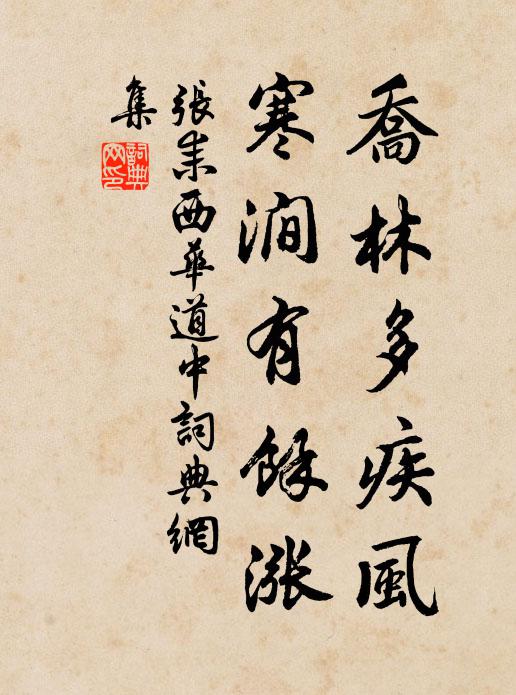 喬林多疾風
寒澗有餘漲
張耒西華道中詞典網
集
詞典
网印